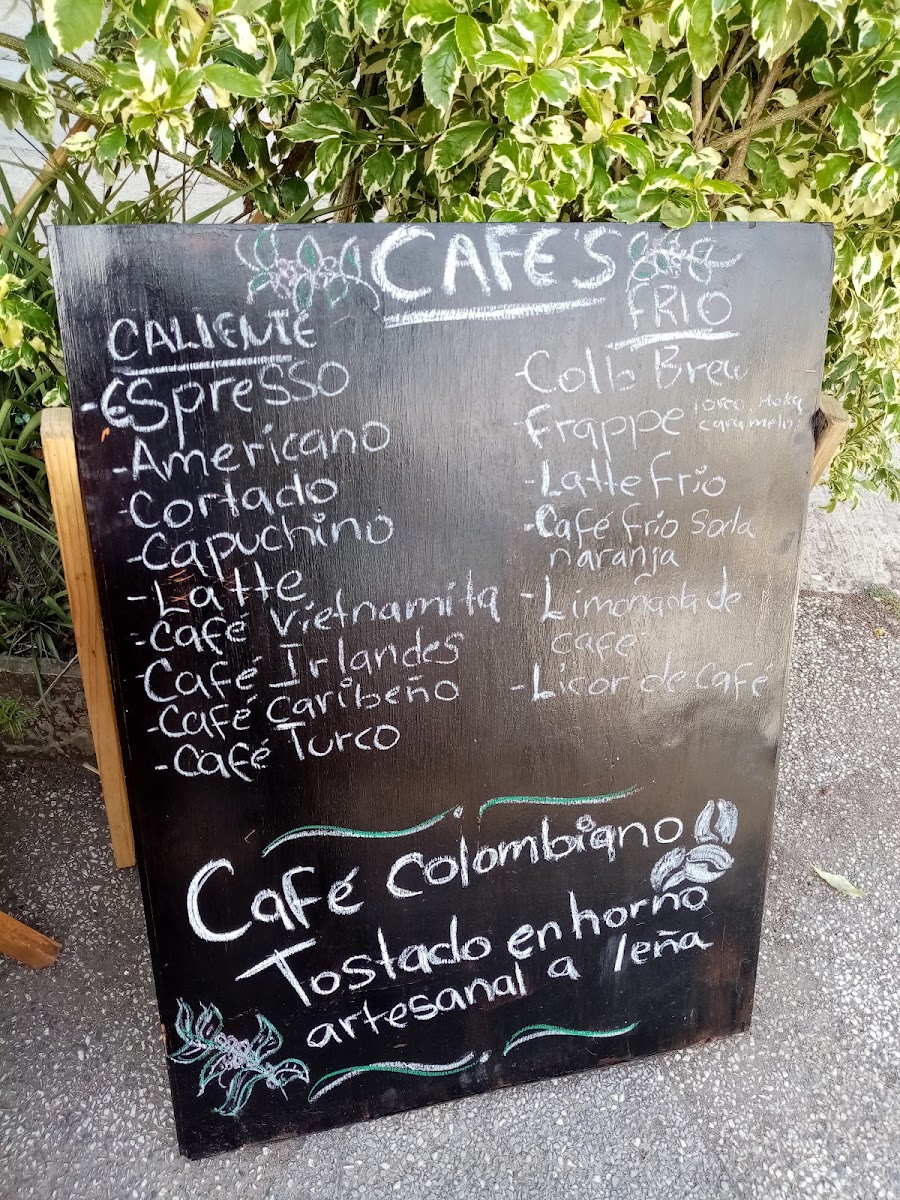 CAFE'S
CALIENTE
-Espresso
-Americano
-Cortado
-Capuchino
-Latte
-Café Vietnamita
-Café Irlandes
-Café caribeño
-Café Turco
FRIO
-Collb Brew
-Frappe
caramelo
-Latte frio
-Café frio Soda
naranja
-Limoñada de
cafe
-Licor de café
Café Colombiano
Tostado en horno
artesanal a leña